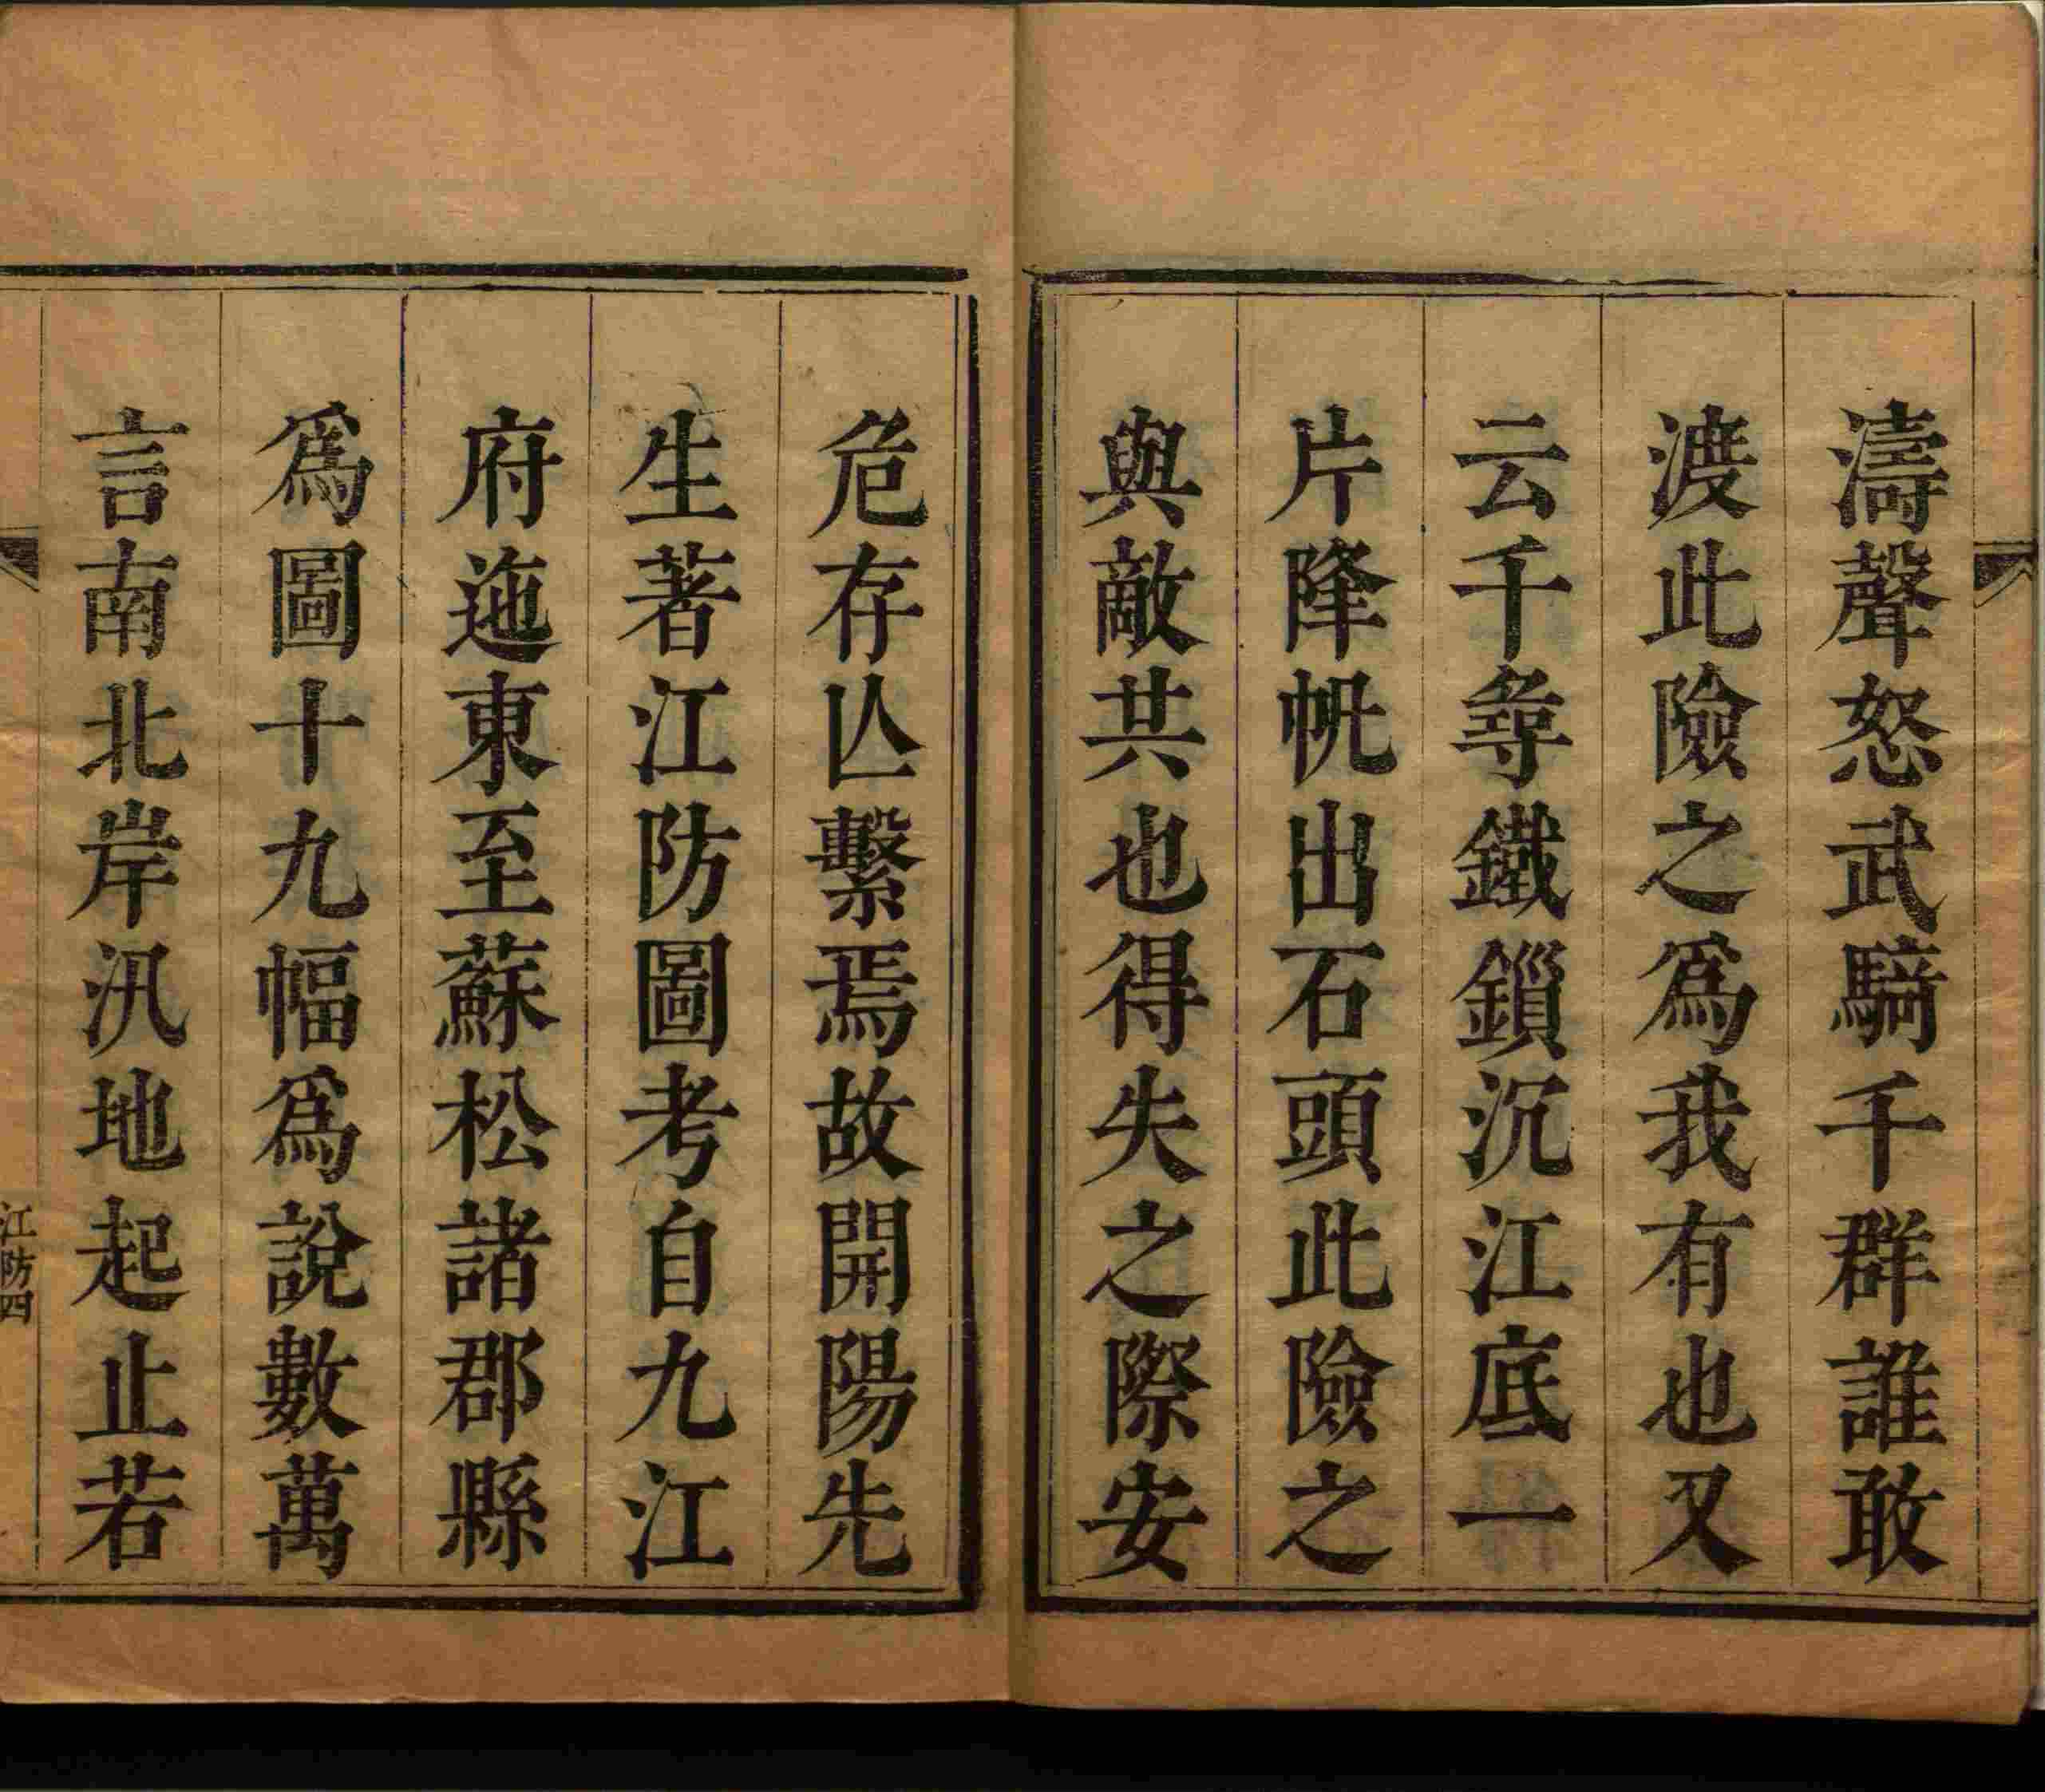 濤聲怒武騎千群誰敢
渡此險之爲我有也又
云千尋鐵鎻沉江底一
片降帆出石頭此險之
與敵共也得失之際安
危存亾繫焉故開陽先
生著江防圖考自九江
府迤東至蘇松諸郡縣
爲圖十九幅爲說數萬
言南北岸汛地起止若
江防四